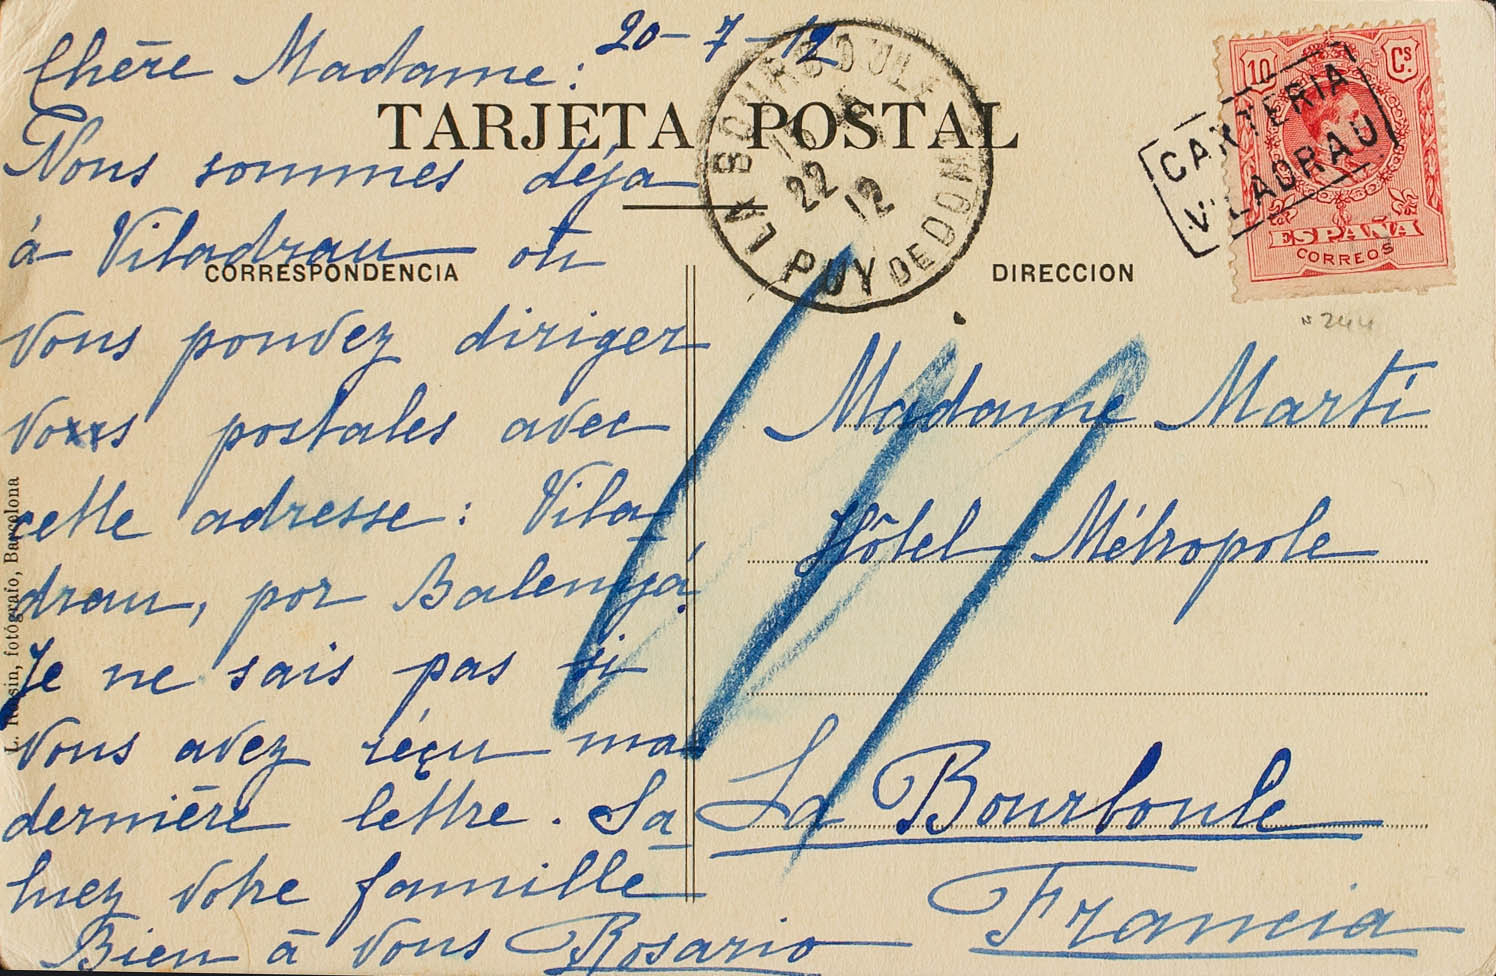 20-7-12
Chère Madame:
TARJETA POSTAL
Nous sommes déja
à Viladrau où
CORRESPONDENCIA
vous pouvez diriger
vos postales avec
cette adresse: Vila-
drau, por Balenyá.
Je ne sais pas si
vous avez réçu ma
dernière lettre. Sa
luez votre famille
Bien à vous Rosario
L. Roisin, fotógrafo, Barcelona
LA BOURBOULE
22
12
PUY DE DOME
10 Cs.
CARTERIA
VILADRAU
ESPAÑA
CORREOS
nº 244
DIRECCION
Madame Martí
Hôtel Métropole
La Bourboule
Francia